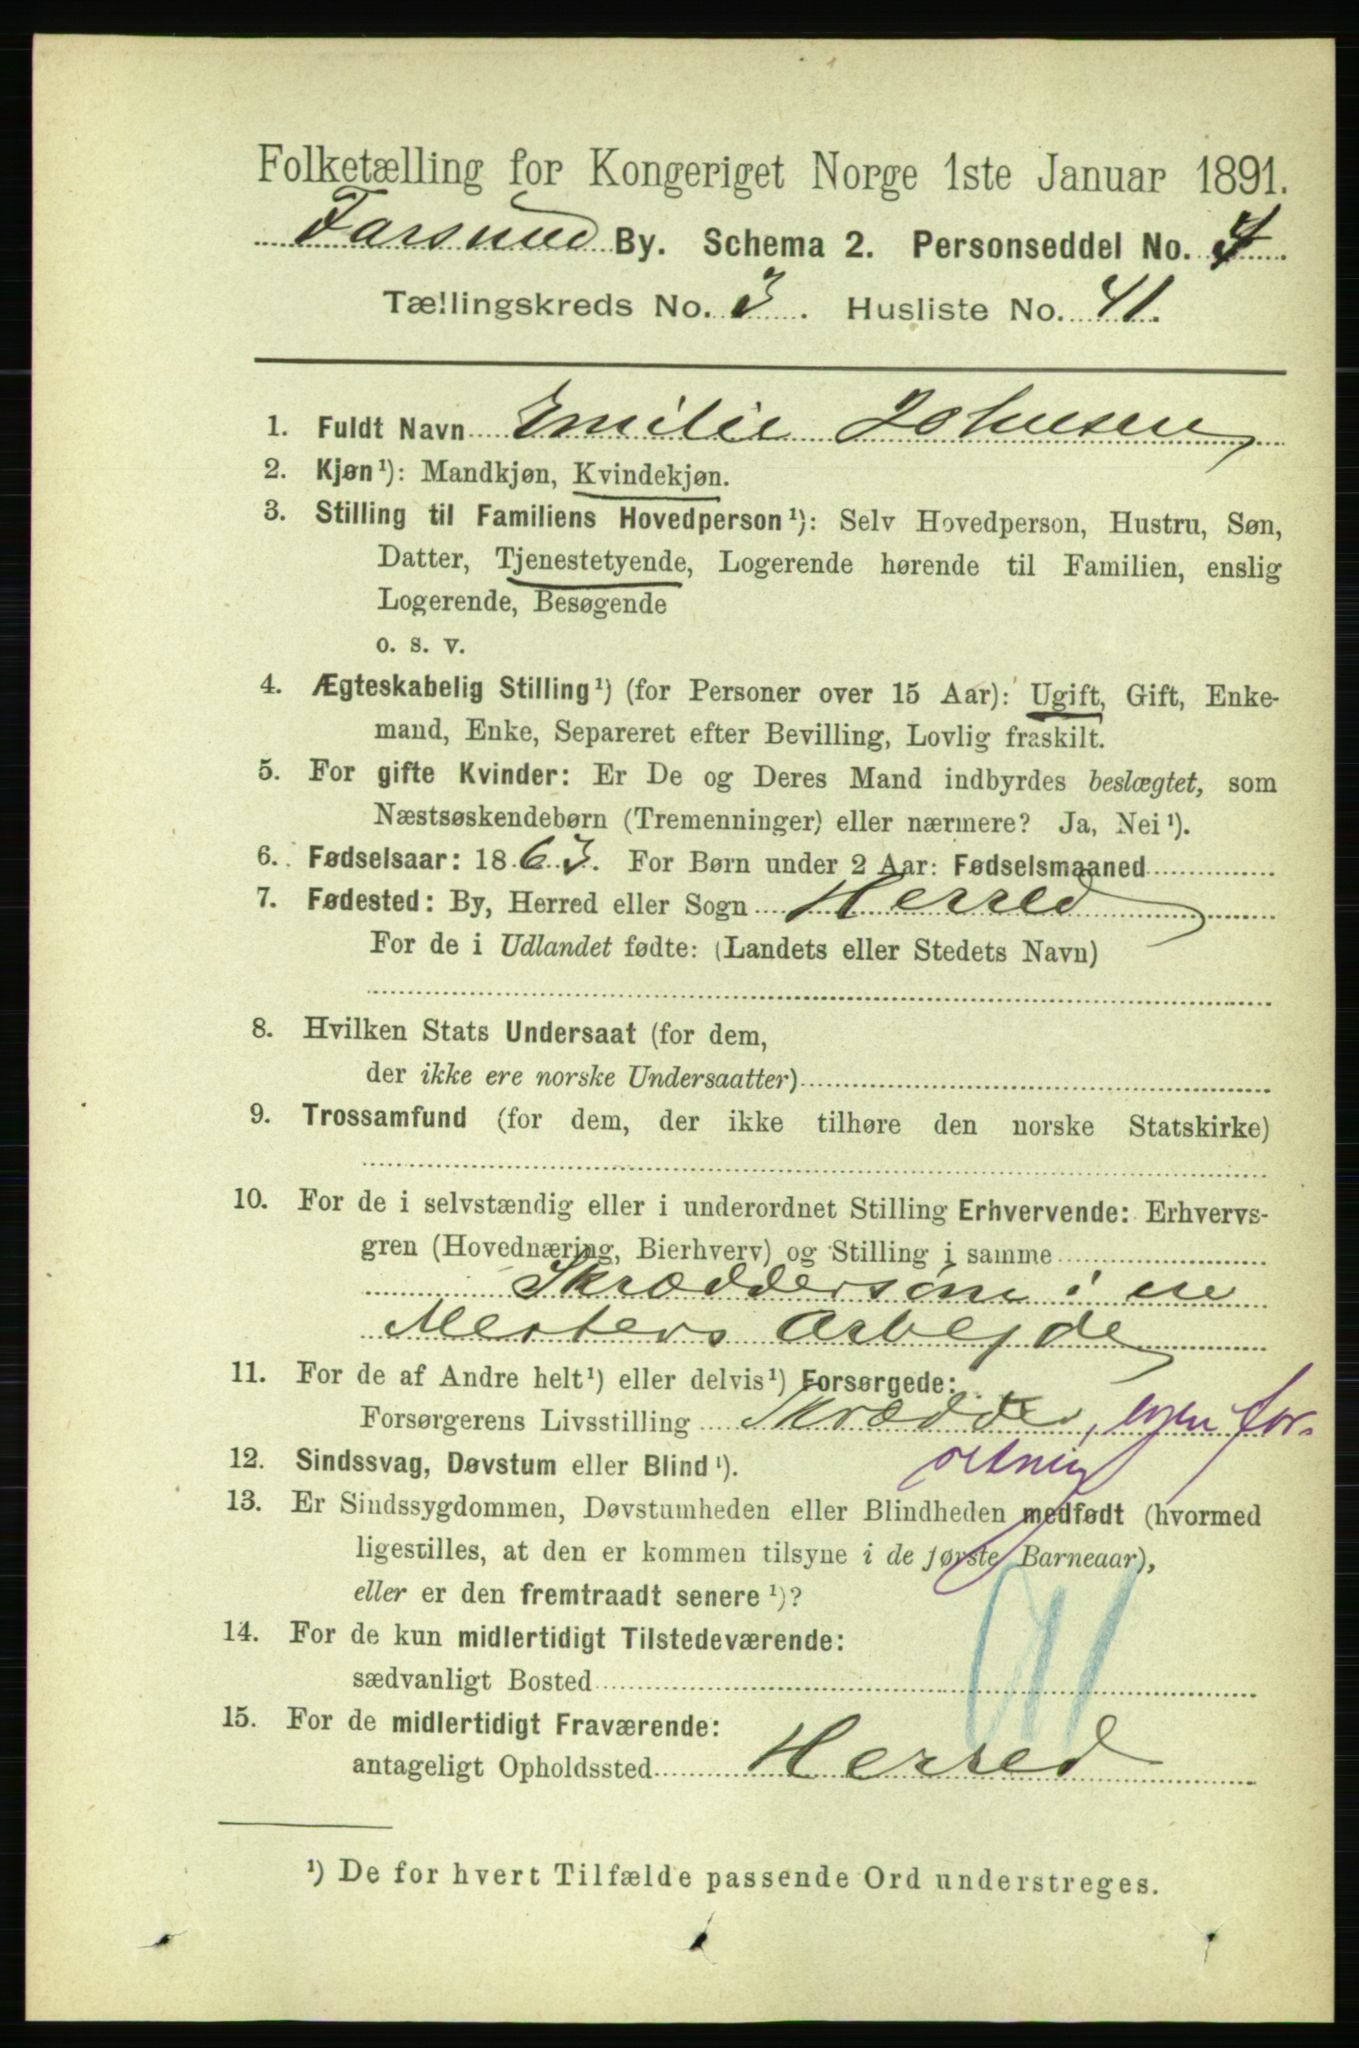 Folketælling for Kongeriget Norge 1ste Januar 1891.
Farsund By. Schema 2. Personseddel No. 4
Tællingskreds No. 3. Husliste No. 41.
1. Fuldt Navn Emilie Johnsen
2. Kjøn¹): Mandkjøn, Kvindekjøn.
3. Stilling til Familiens Hovedperson¹): Selv Hovedperson, Hustru, Søn,
Datter, Tjenestetyende, Logerende hørende til Familien, enslig
Logerende, Besøgende
o. s. v.
4. Ægteskabelig Stilling¹) (for Personer over 15 Aar): Ugift, Gift, Enke-
mand, Enke, Separeret efter Bevilling, Lovlig fraskilt.
5. For gifte Kvinder: Er De og Deres Mand indbyrdes beslægtet, som
Næstsøskendebørn (Tremenninger) eller nærmere? Ja, Nei¹).
6. Fødselsaar: 1863. For Børn under 2 Aar: Fødselsmaaned
7. Fødested: By, Herred eller Sogn Herred
For de i Udlandet fødte: (Landets eller Stedets Navn)
8. Hvilken Stats Undersaat (for dem,
der ikke ere norske Undersaatter)
9. Trossamfund (for dem, der ikke tilhøre den norske Statskirke)
10. For de i selvstændig eller i underordnet Stilling Erhvervende: Erhvervs-
gren (Hovednæring, Bierhverv) og Stilling i samme
Skræddersøm i en
Mesters Arbejde
11. For de af Andre helt¹) eller delvis¹) Forsørgede:
Forsørgerens Livsstilling Skrædder, egen for-
retning
12. Sindssvag, Døvstum eller Blind¹).
13. Er Sindssygdommen, Døvstumheden eller Blindheden medfødt (hvormed
ligestilles, at den er kommen tilsyne i de første Barneaar),
eller er den fremtraadt senere¹)?
14. For de kun midlertidigt Tilstedeværende:
sædvanligt Bosted
15. For de midlertidigt Fraværende:
antageligt Opholdssted Herred
¹) De for hvert Tilfælde passende Ord understreges.